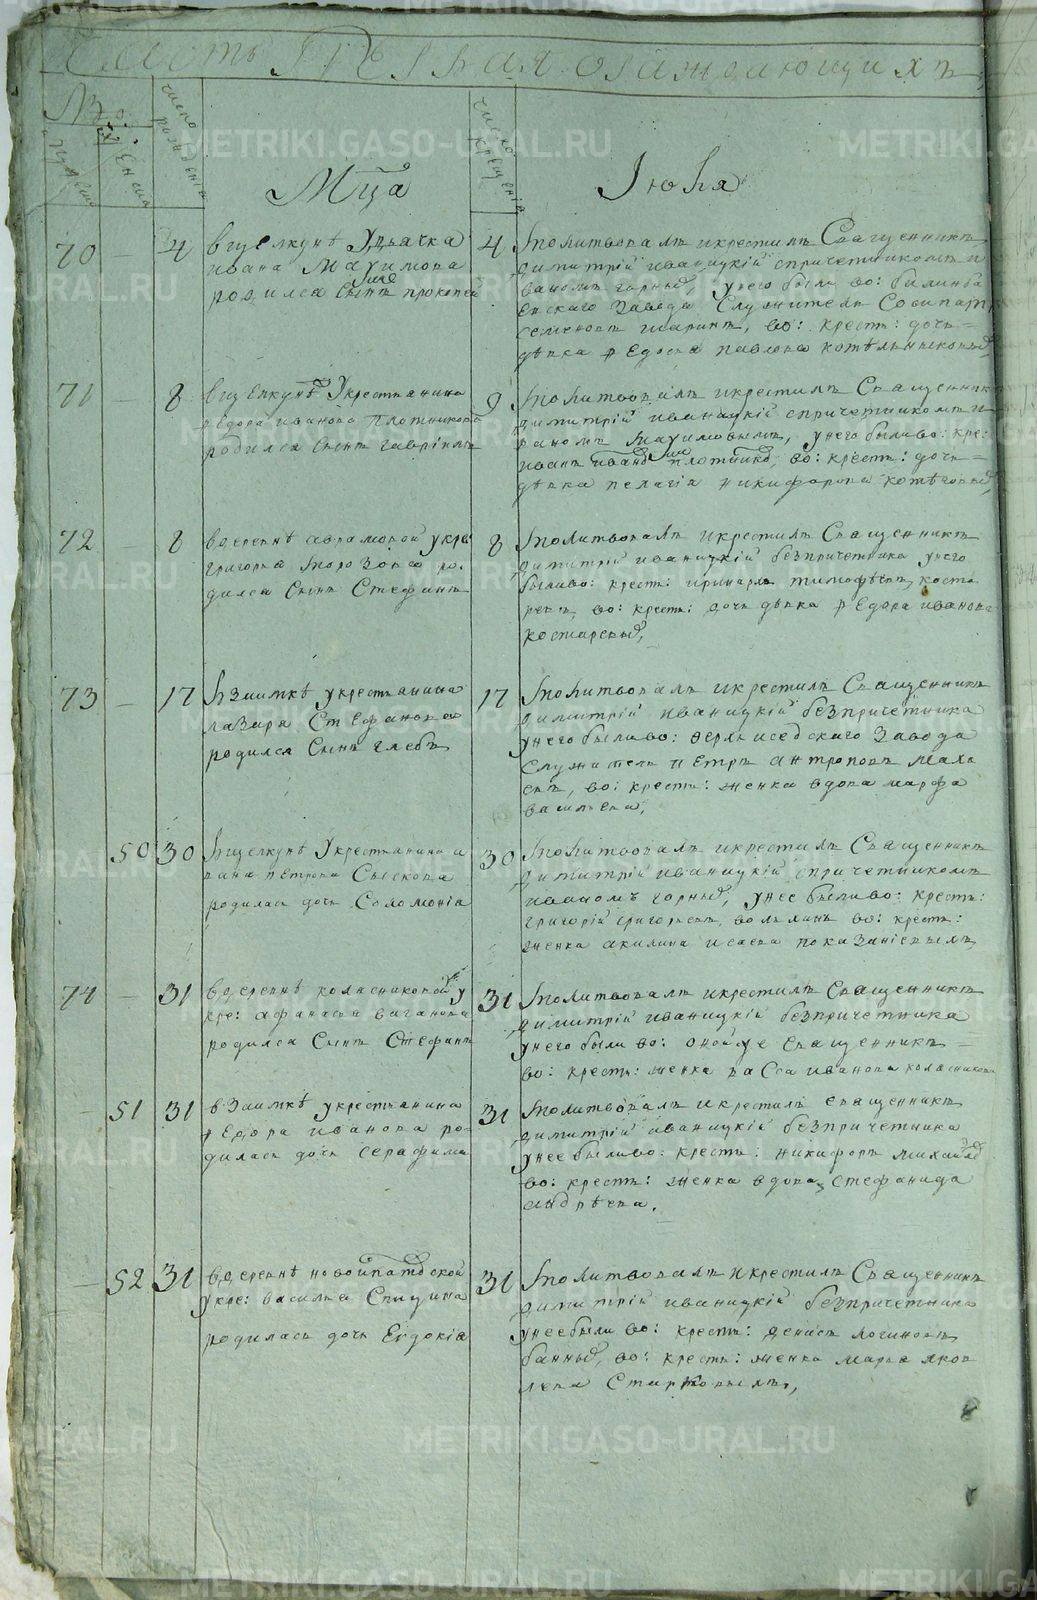 Часть Первая о раждающихъ
№
мужеска
женска
число рожденія
Мца
число крещенія
Іюля
70 — 4
вщелкунѣ Удьячка
ивана Махимова
родился сынъ прокопей
4
молитвовалъ икрестилъ Священникъ
димитрій иваницкій спричетникомъ и
ваномъ горныхъ, унего были во:
Енского Завода Служитель
семеновъ во: крест: дочь
дѣвка Федосья павлова котельниковыхъ
71 — 8
вщелкунѣ Укрестьянина
Федора иванова плотникова
родился сынъ гавріилъ
9
молитвовалъ икрестилъ Священникъ
димитрій иваницкій спричетникомъ и
ваномъ Махимовымъ, унего были во: кре:
иванъ плотниковъ, во: крест: дочь
дѣвка пелагія никифорова
72 — 8
вдеревнѣ аврамовой укре:
григорья Морозова ро-
дился Сынъ Стефанъ
8
молитвовалъ икрестилъ Священникъ
димитрій иваницкій безпричетника унего
были во: крест: тимофѣевъ коста
ревъ, во: крест: дочь дѣвка Федора иванова
костаревыхъ,
73 — 17
взимкѣ укрестьянина
лазаря Стефанова
родился Сынъ глебъ
17
молитвовалъ икрестилъ Священникъ
димитрій иваницкій безпричетника
унего были во: Верхисетского Завода
Служитель петръ антроповъ
во: крест: женка вдова марфа
васильева,
50 30
вщелкунѣ Укрестьянина и
вана петрова Сыскова
родилась дочь Соломонія
30
молитвовалъ икрестилъ Священникъ
димитрій иваницкій спричетникомъ
иваномъ горныхъ, унее были во: крест:
григорій григорьевъ, во: крест:
женка акилина исаева
74 — 31
вдеревнѣ коласниковой у
кре: афанасья ваганова
родился Сынъ Стефанъ
31
молитвовалъ икрестилъ Священникъ
димитрій иваницкій безпричетника
унего были во: оной же Священникъ
во: крест: женка васса иванова коласникова
— 51 31
взаимкѣ укрестьянина
Федора иванова ро-
дилась дочь серафима
31
молитвовалъ икрестилъ священникъ
димитрій иваницкій безпричетника
унее были во: крест: никифоръ михайловъ
во: крест: женка вдова, стефанида
андрѣева.
— 52 31
вдеревнѣ новоипатовской
укре: василья Спицина
родилась дочь Евдокія
31
молитвовалъ икрестилъ Священникъ
димитрій иваницкій безпричетника
унее были во: крест: денисъ логиновъ
банныхъ, во: крест: женка марья яков
лева Старковыхъ,
METRIKI.GASO-URAL.RU